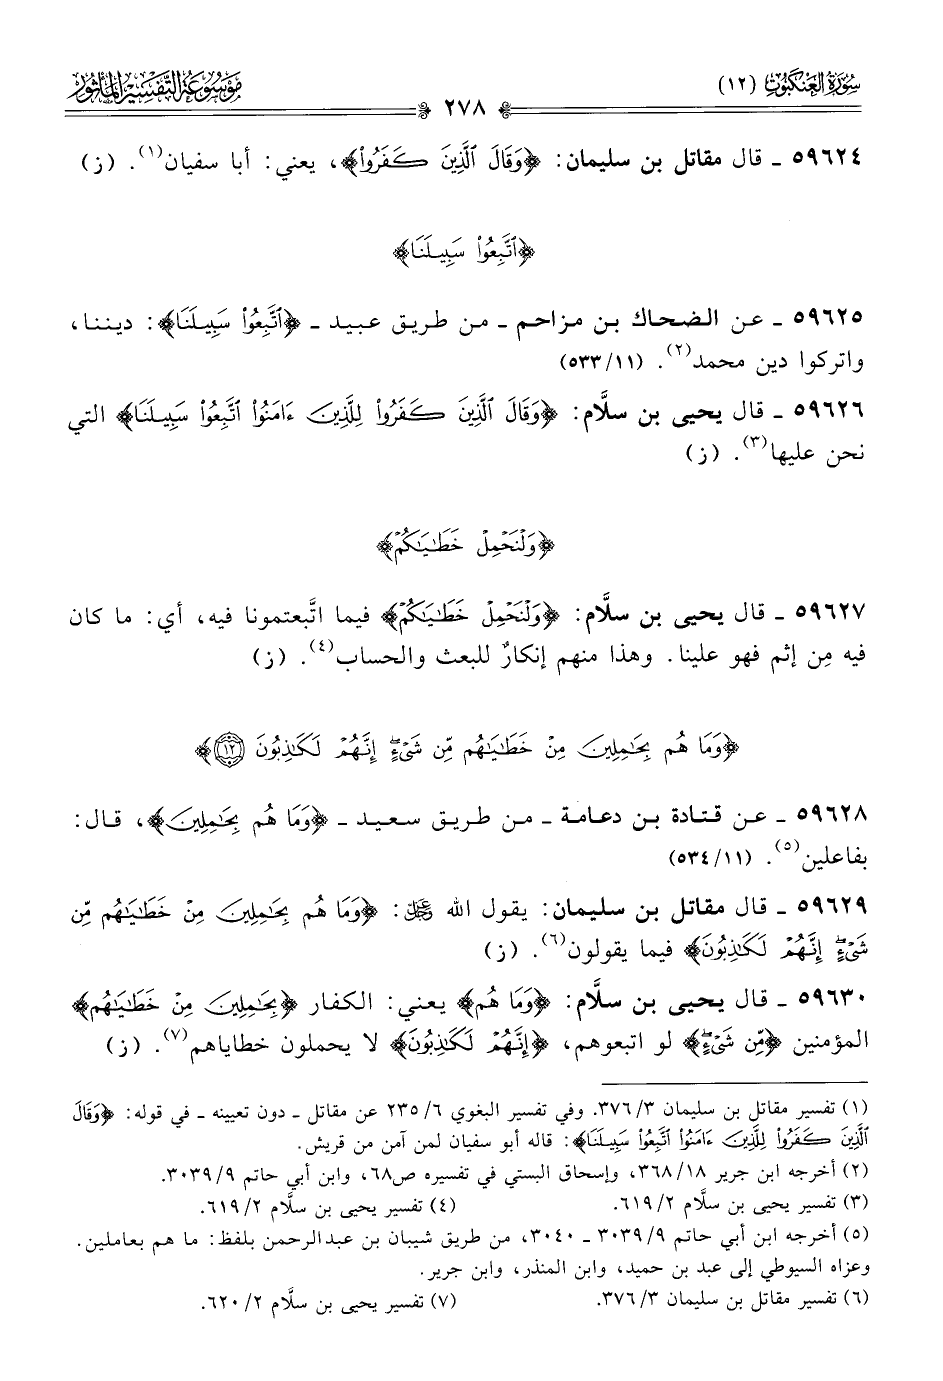 سُورَةُ العَنكَبُوتِ (١٢)
مَوْسُوعَةُ التَّفْسِيرِ المَأْثُور
٢٧٨
٥٩٦٢٤ ـ قال مقاتل بن سليمان: ﴿وَقَالَ ٱلَّذِينَ كَفَرُواْ﴾، يعني: أبا سفيان(١). (ز)
﴿ٱتَّبِعُواْ سَبِيلَنَا﴾
٥٩٦٢٥ ـ عن الضحاك بن مزاحم ـ من طريق عبيد ـ ﴿ٱتَّبِعُواْ سَبِيلَنَا﴾: ديننا،
واتركوا دين محمد(٢). (٥٣٣/١١)
٥٩٦٢٦ ـ قال يحيى بن سلَّام: ﴿وَقَالَ ٱلَّذِينَ كَفَرُواْ لِلَّذِينَ ءَامَنُواْ ٱتَّبِعُواْ سَبِيلَنَا﴾ التي
نحن عليها(٣). (ز)
﴿وَلۡنَحۡمِلۡ خَطَٰيَٰكُمۡ﴾
٥٩٦٢٧ ـ قال يحيى بن سلَّام: ﴿وَلۡنَحۡمِلۡ خَطَٰيَٰكُمۡ﴾ فيما اتَّبعتمونا فيه، أي: ما كان
فيه مِن إثم فهو علينا. وهذا منهم إنكارٌ للبعث والحساب(٤). (ز)
﴿وَمَا هُم بِحَٰمِلِينَ مِنۡ خَطَٰيَٰهُم مِّن شَيۡءٍۖ إِنَّهُمۡ لَكَٰذِبُونَ ١٢﴾
٥٩٦٢٨ ـ عن قتادة بن دعامة ـ من طريق سعيد ـ ﴿وَمَا هُم بِحَٰمِلِينَ﴾، قال:
بفاعلين(٥). (٥٣٤/١١)
٥٩٦٢٩ ـ قال مقاتل بن سليمان: يقول الله ﷻ: ﴿وَمَا هُم بِحَٰمِلِينَ مِنۡ خَطَٰيَٰهُم مِّن
شَيۡءٍۖ إِنَّهُمۡ لَكَٰذِبُونَ﴾ فيما يقولون(٦). (ز)
٥٩٦٣٠ ـ قال يحيى بن سلَّام: ﴿وَمَا هُم﴾ يعني: الكفار ﴿بِحَٰمِلِينَ مِنۡ خَطَٰيَٰهُم﴾
المؤمنين ﴿مِّن شَيۡءٍۖ﴾ لو اتبعوهم، ﴿إِنَّهُمۡ لَكَٰذِبُونَ﴾ لا يحملون خطاياهم(٧). (ز)
(١) تفسير مقاتل بن سليمان ٣/ ٣٧٦. وفي تفسير البغوي ٦/ ٢٣٥ عن مقاتل ـ دون تعيينه ـ في قوله: ﴿وَقَالَ
ٱلَّذِينَ كَفَرُواْ لِلَّذِينَ ءَامَنُواْ ٱتَّبِعُواْ سَبِيلَنَا﴾: قاله أبو سفيان لمن آمن من قريش.
(٢) أخرجه ابن جرير ١٨/ ٣٦٨، وإسحاق البستي في تفسيره ص٦٨، وابن أبي حاتم ٩/ ٣٠٣٩.
(٣) تفسير يحيى بن سلَّام ٢/ ٦١٩. (٤) تفسير يحيى بن سلَّام ٢/ ٦١٩.
(٥) أخرجه ابن أبي حاتم ٩/ ٣٠٣٩ ـ ٣٠٤٠، من طريق شيبان بن عبدالرحمن بلفظ: ما هم بعاملين.
وعزاه السيوطي إلى عبد بن حميد، وابن المنذر، وابن جرير.
(٦) تفسير مقاتل بن سليمان ٣/ ٣٧٦. (٧) تفسير يحيى بن سلَّام ٢/ ٦٢٠.